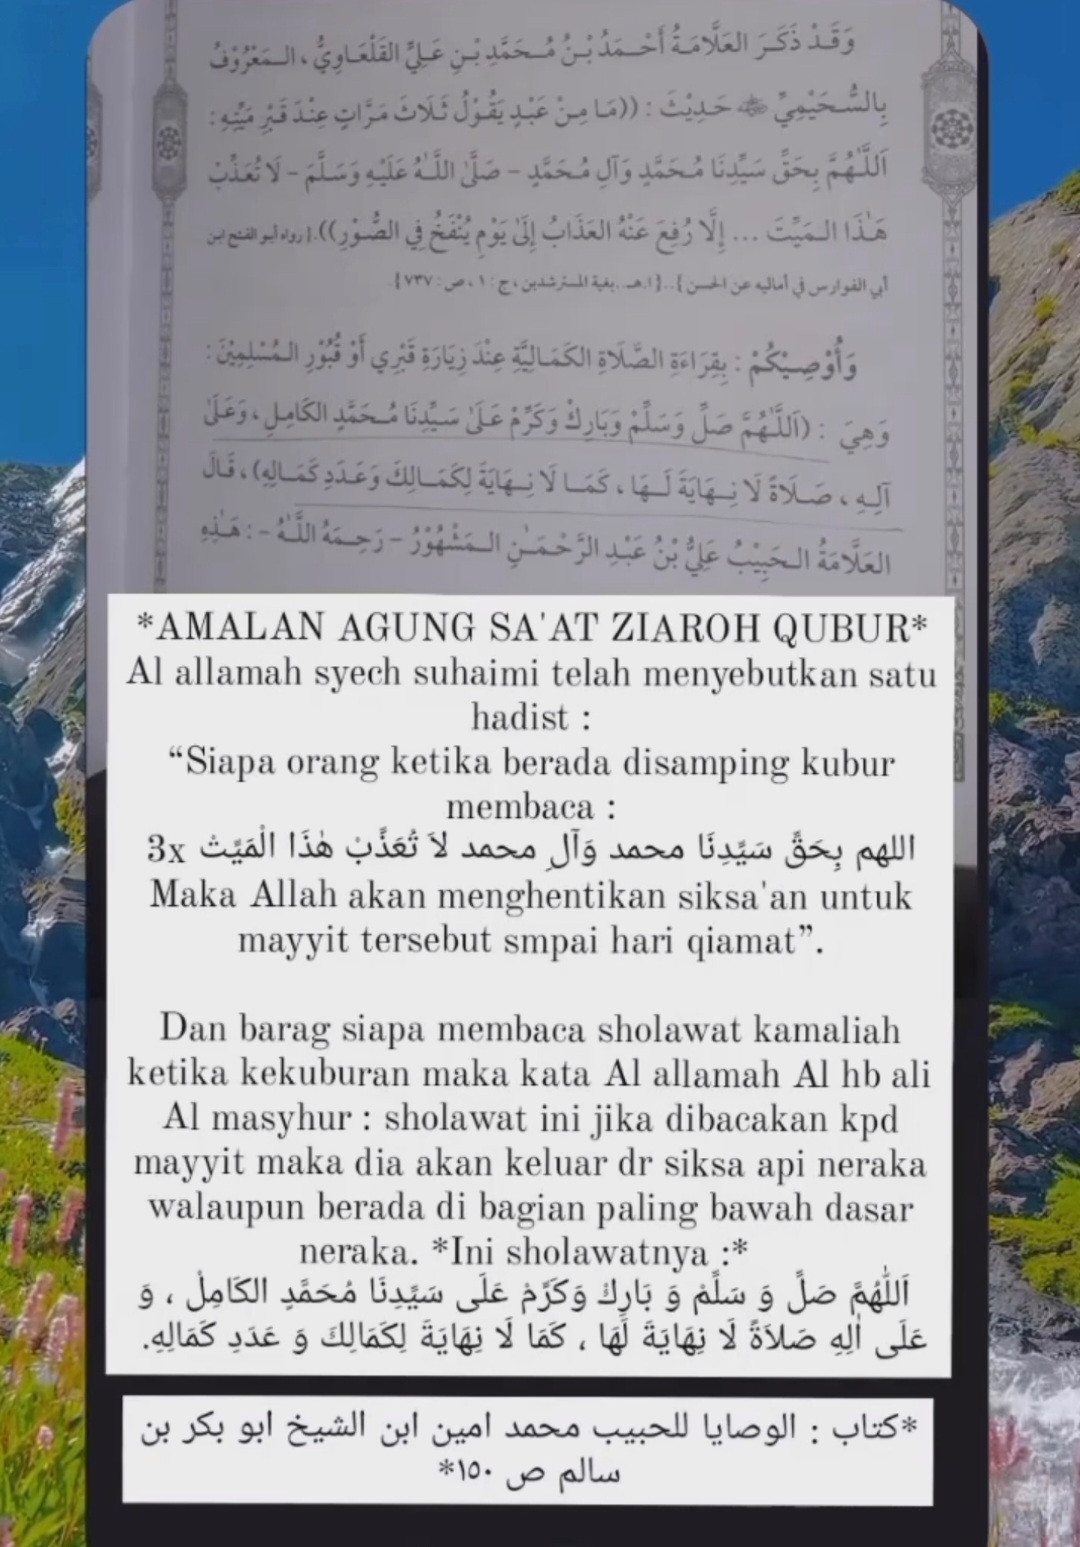 وَقَدْ ذَكَرَ العَلَّامَةُ أَحْـمَدُ بْـنُ مُـحَمَّدِ بْـنِ عَـلِيٍّ القَلْعَـاوِيُّ ، الـمَعْرُوْفُ
بِالسُّـحَيْمِيِّ ﷺ حَـدِيْثَ : ((مَـا مِـنْ عَبْـدٍ يَقُـوْلُ ثَـلَاثَ مَـرَّاتٍ عِنْـدَ قَـبْرِ مَيِّتٍ :
اَللَّـهُمَّ بِحَقِّ سَيِّدِنَا مُـحَمَّدٍ وَآلِ مُـحَمَّدٍ – صَلَّى اللَّـهُ عَلَيْهِ وَسَلَّمَ – لَا تُعَذِّبْ
هَـٰذَا الـمَيِّتَ ... إِلَّا رُفِعَ عَنْهُ العَذَابُ إِلَىٰ يَوْمِ يُنْفَخُ فِي الصُّوْرِ)).{رواه أبـو الفتح ابن
أبي الفوارس في أماليه عن الحسن}..{ا.هـ..بغية المسترشدين ، ج : ١ ، ص : ٧٣٧}.
وَأُوْصِـيْكُمْ : بِقِرَاءَةِ الصَّلَاةِ الكَمَـالِيَّةِ عِنْدَ زِيَارَةِ قَبْرِي أَوْ قُبُوْرِ الـمُسْلِمِيْنَ :
وَهِيَ : (اَللَّـهُمَّ صَلِّ وَسَلِّمْ وَبَارِكْ وَكَرِّمْ عَلَىٰ سَـيِّدِنَا مُـحَمَّدٍ الكَامِلِ ، وَعَلَىٰ
آلِـهِ ، صَـلَاةً لَا نِـهَايَةَ لَـهَا ، كَمَـا لَا نِـهَايَةَ لِكَمَـالِكَ وَعَـدَدِ كَمَـالِهِ) ، قَـالَ
العَلَّامَةُ الـحَبِيْبُ عَلِيُّ بْنُ عَبْدِ الرَّحْمَـٰنِ الـمَشْهُوْرُ – رَحِـمَهُ اللَّـهُ – : هَـٰذِهِ
*AMALAN AGUNG SA'AT ZIAROH QUBUR*
Al allamah syech suhaimi telah menyebutkan satu
hadist :
“Siapa orang ketika berada disamping kubur
membaca :
اللهم بِحَقِّ سَيِّدِنَا محمد وَآلِ محمد لاَ تُعَذِّبْ هٰذَا الْمَيِّتْ 3x
Maka Allah akan menghentikan siksa'an untuk
mayyit tersebut smpai hari qiamat”.
Dan barag siapa membaca sholawat kamaliah
ketika kekuburan maka kata Al allamah Al hb ali
Al masyhur : sholawat ini jika dibacakan kpd
mayyit maka dia akan keluar dr siksa api neraka
walaupun berada di bagian paling bawah dasar
neraka. *Ini sholawatnya :*
اَللّٰهُمَّ صَلِّ وَ سَلِّمْ وَ بَارِكْ وَكَرِّمْ عَلَى سَيِّدِنَا مُحَمَّدٍ الكَامِلْ ، وَ
عَلَى اٰلِهِ صَلاَةً لَا نِهَايَةَ لَهَا ، كَمَا لَا نِهَايَةَ لِكَمَالِكَ وَ عَدَدِ كَمَالِهِ.
*كتاب : الوصايا للحبيب محمد امين ابن الشيخ ابو بكر بن
سالم ص ١٥٠*